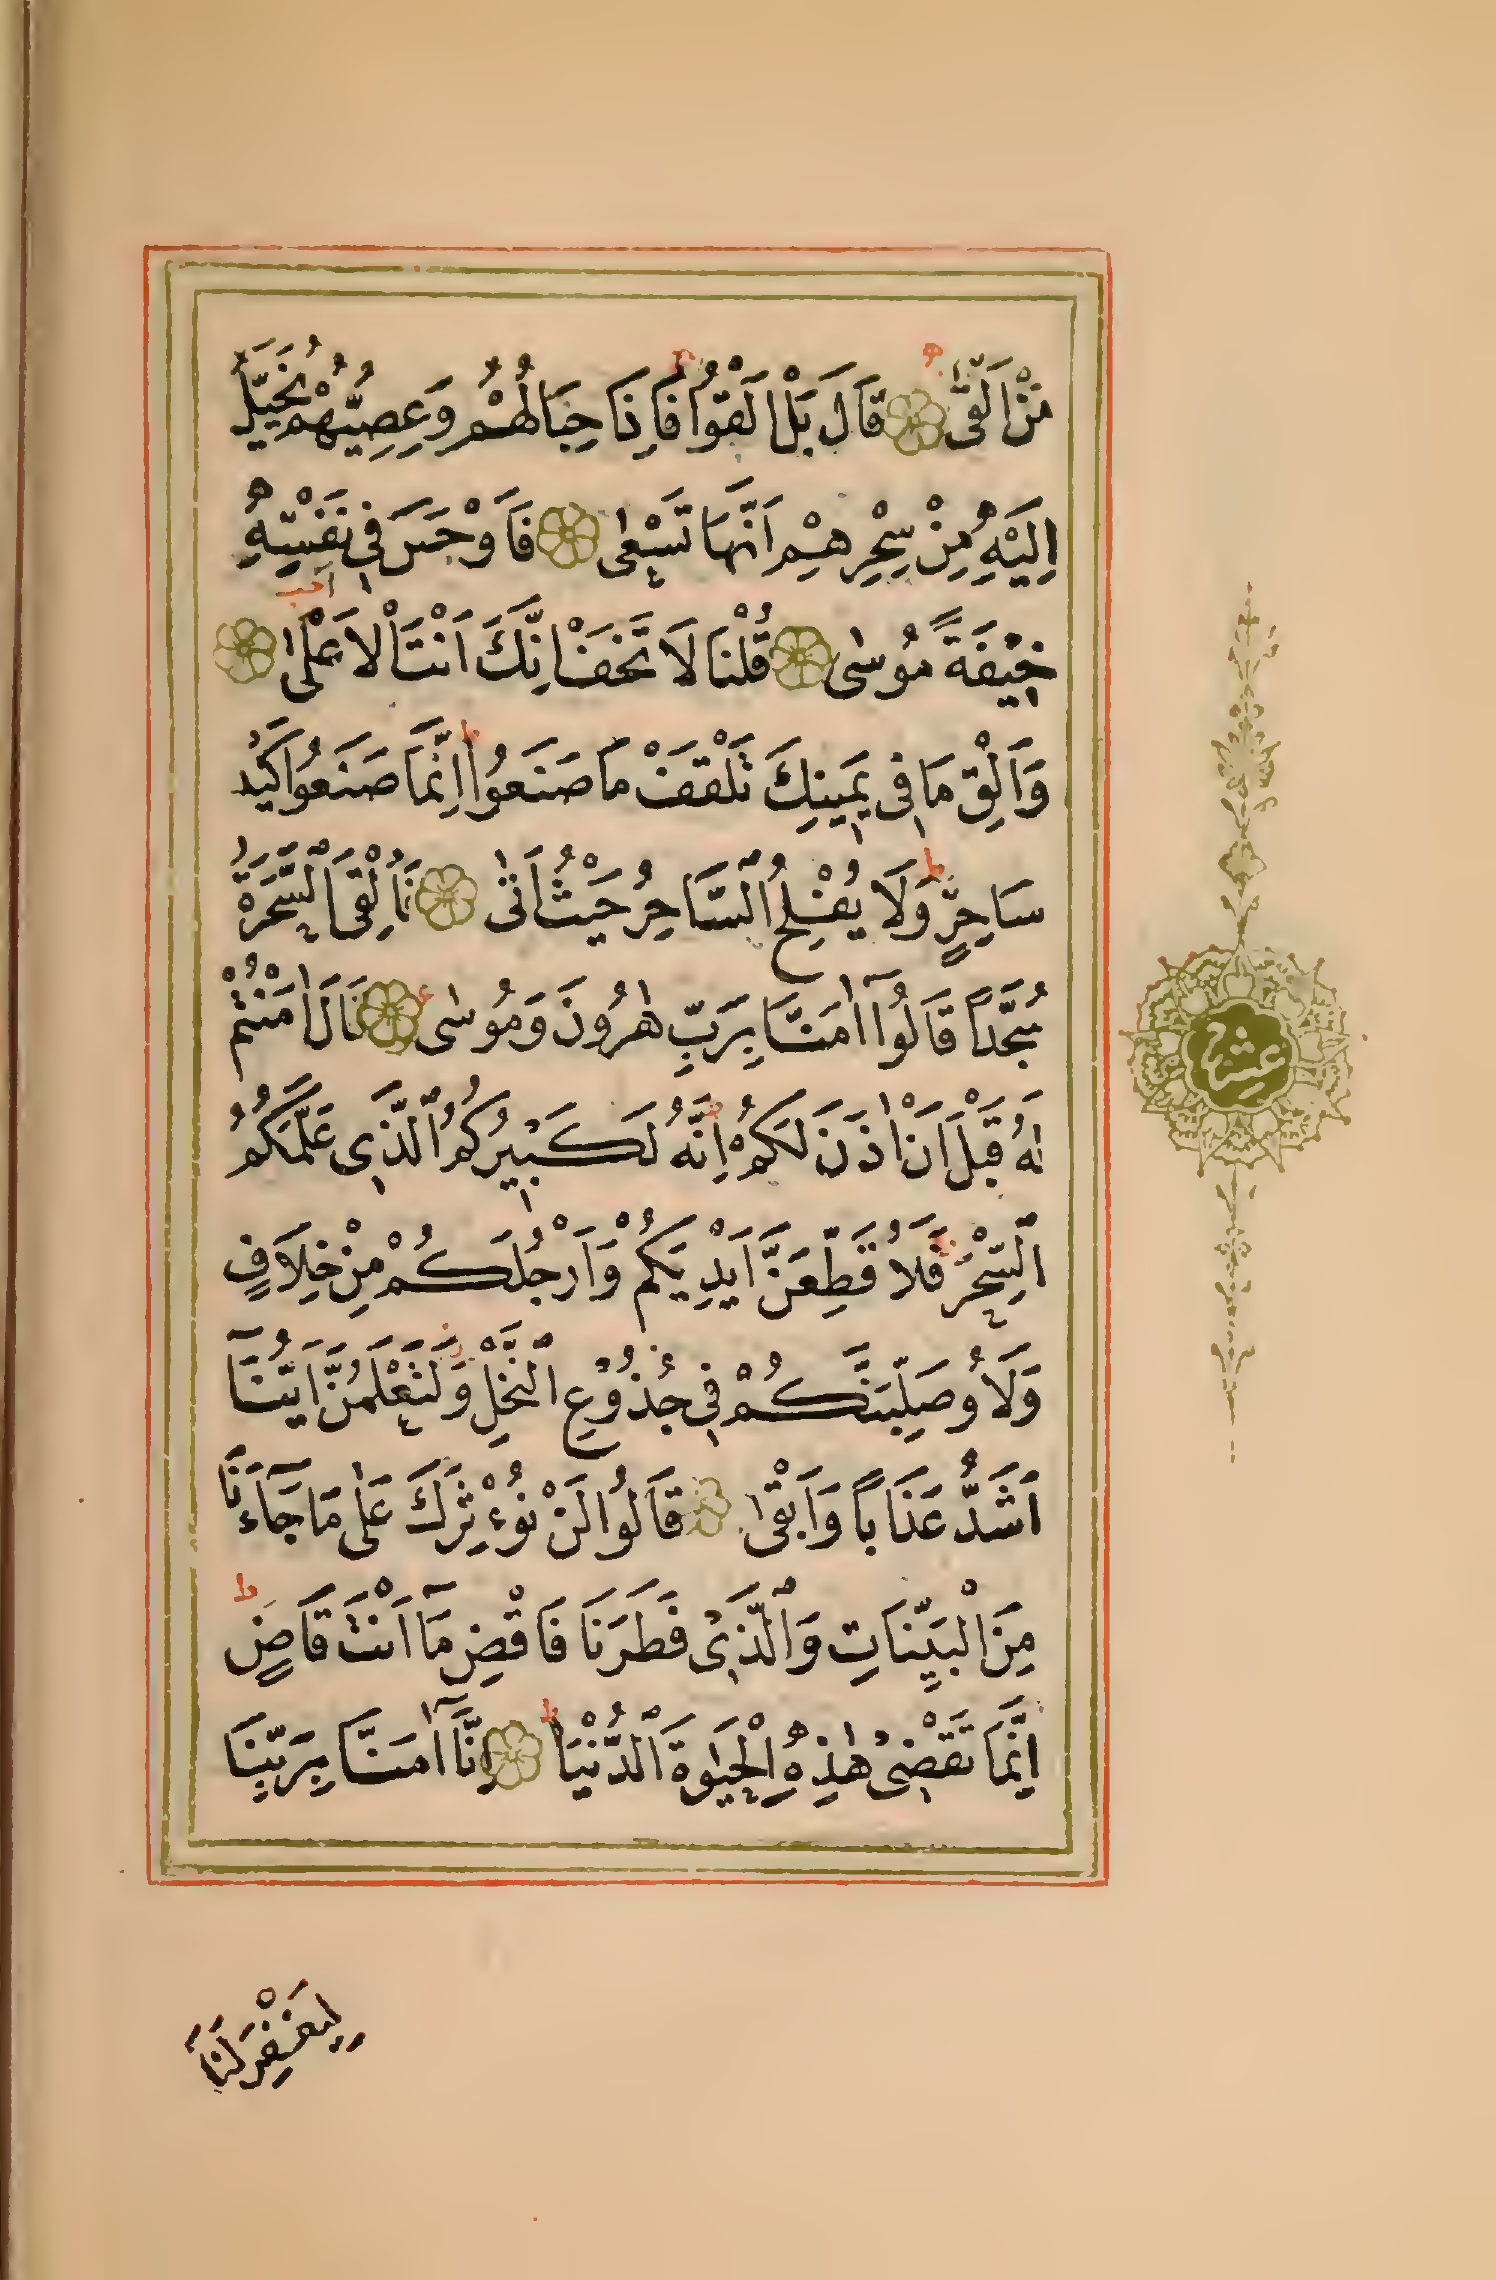 مَنْ اَلْقٰى قَالَ بَلْ اَلْقُوا فَاِذَا حِبَالُهُمْ وَعِصِيُّهُمْ يُخَيَّلُ
اِلَيْهِ مِنْ سِحْرِهِمْ اَنَّهَا تَسْعٰى فَاَوْجَسَ فِي نَفْسِهِ
خِيفَةً مُوسٰى قُلْنَا لَا تَخَفْ اِنَّكَ اَنْتَ الْاَعْلٰى
وَاَلْقِ مَا فِي يَمِينِكَ تَلْقَفْ مَا صَنَعُوا اِنَّمَا صَنَعُوا كَيْدُ
سَاحِرٍ وَلَا يُفْلِحُ السَّاحِرُ حَيْثُ اَتٰى فَاُلْقِيَ السَّحَرَةُ
سُجَّدًا قَالُوا اٰمَنَّا بِرَبِّ هٰرُونَ وَمُوسٰى قَالَ اٰمَنْتُمْ
لَهُ قَبْلَ اَنْ اٰذَنَ لَكُمْ اِنَّهُ لَكَبِيرُكُمُ الَّذِي عَلَّمَكُمُ
السِّحْرَ فَلَاُقَطِّعَنَّ اَيْدِيَكُمْ وَاَرْجُلَكُمْ مِنْ خِلَافٍ
وَلَاُوصَلِّبَنَّكُمْ فِي جُذُوعِ النَّخْلِ وَلَتَعْلَمُنَّ اَيُّنَا
اَشَدُّ عَذَابًا وَاَبْقٰى قَالُوا لَنْ نُؤْثِرَكَ عَلٰى مَا جَاءَنَا
مِنَ الْبَيِّنَاتِ وَالَّذِي فَطَرَنَا فَاقْضِ مَا اَنْتَ قَاضٍ
اِنَّمَا تَقْضِي هٰذِهِ الْحَيٰوةَ الدُّنْيَا اِنَّا اٰمَنَّا بِرَبِّنَا
عشر
لِيَغْفِرَ لَنَا